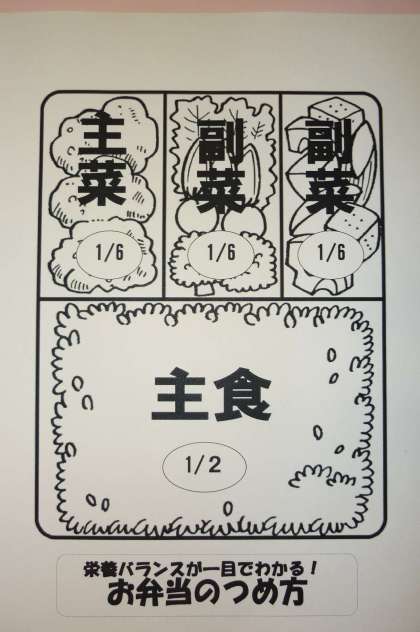 主菜
1/6
副菜
1/6
副菜
1/6
主食
1/2
栄養バランスが一目でわかる！
お弁当のつめ方